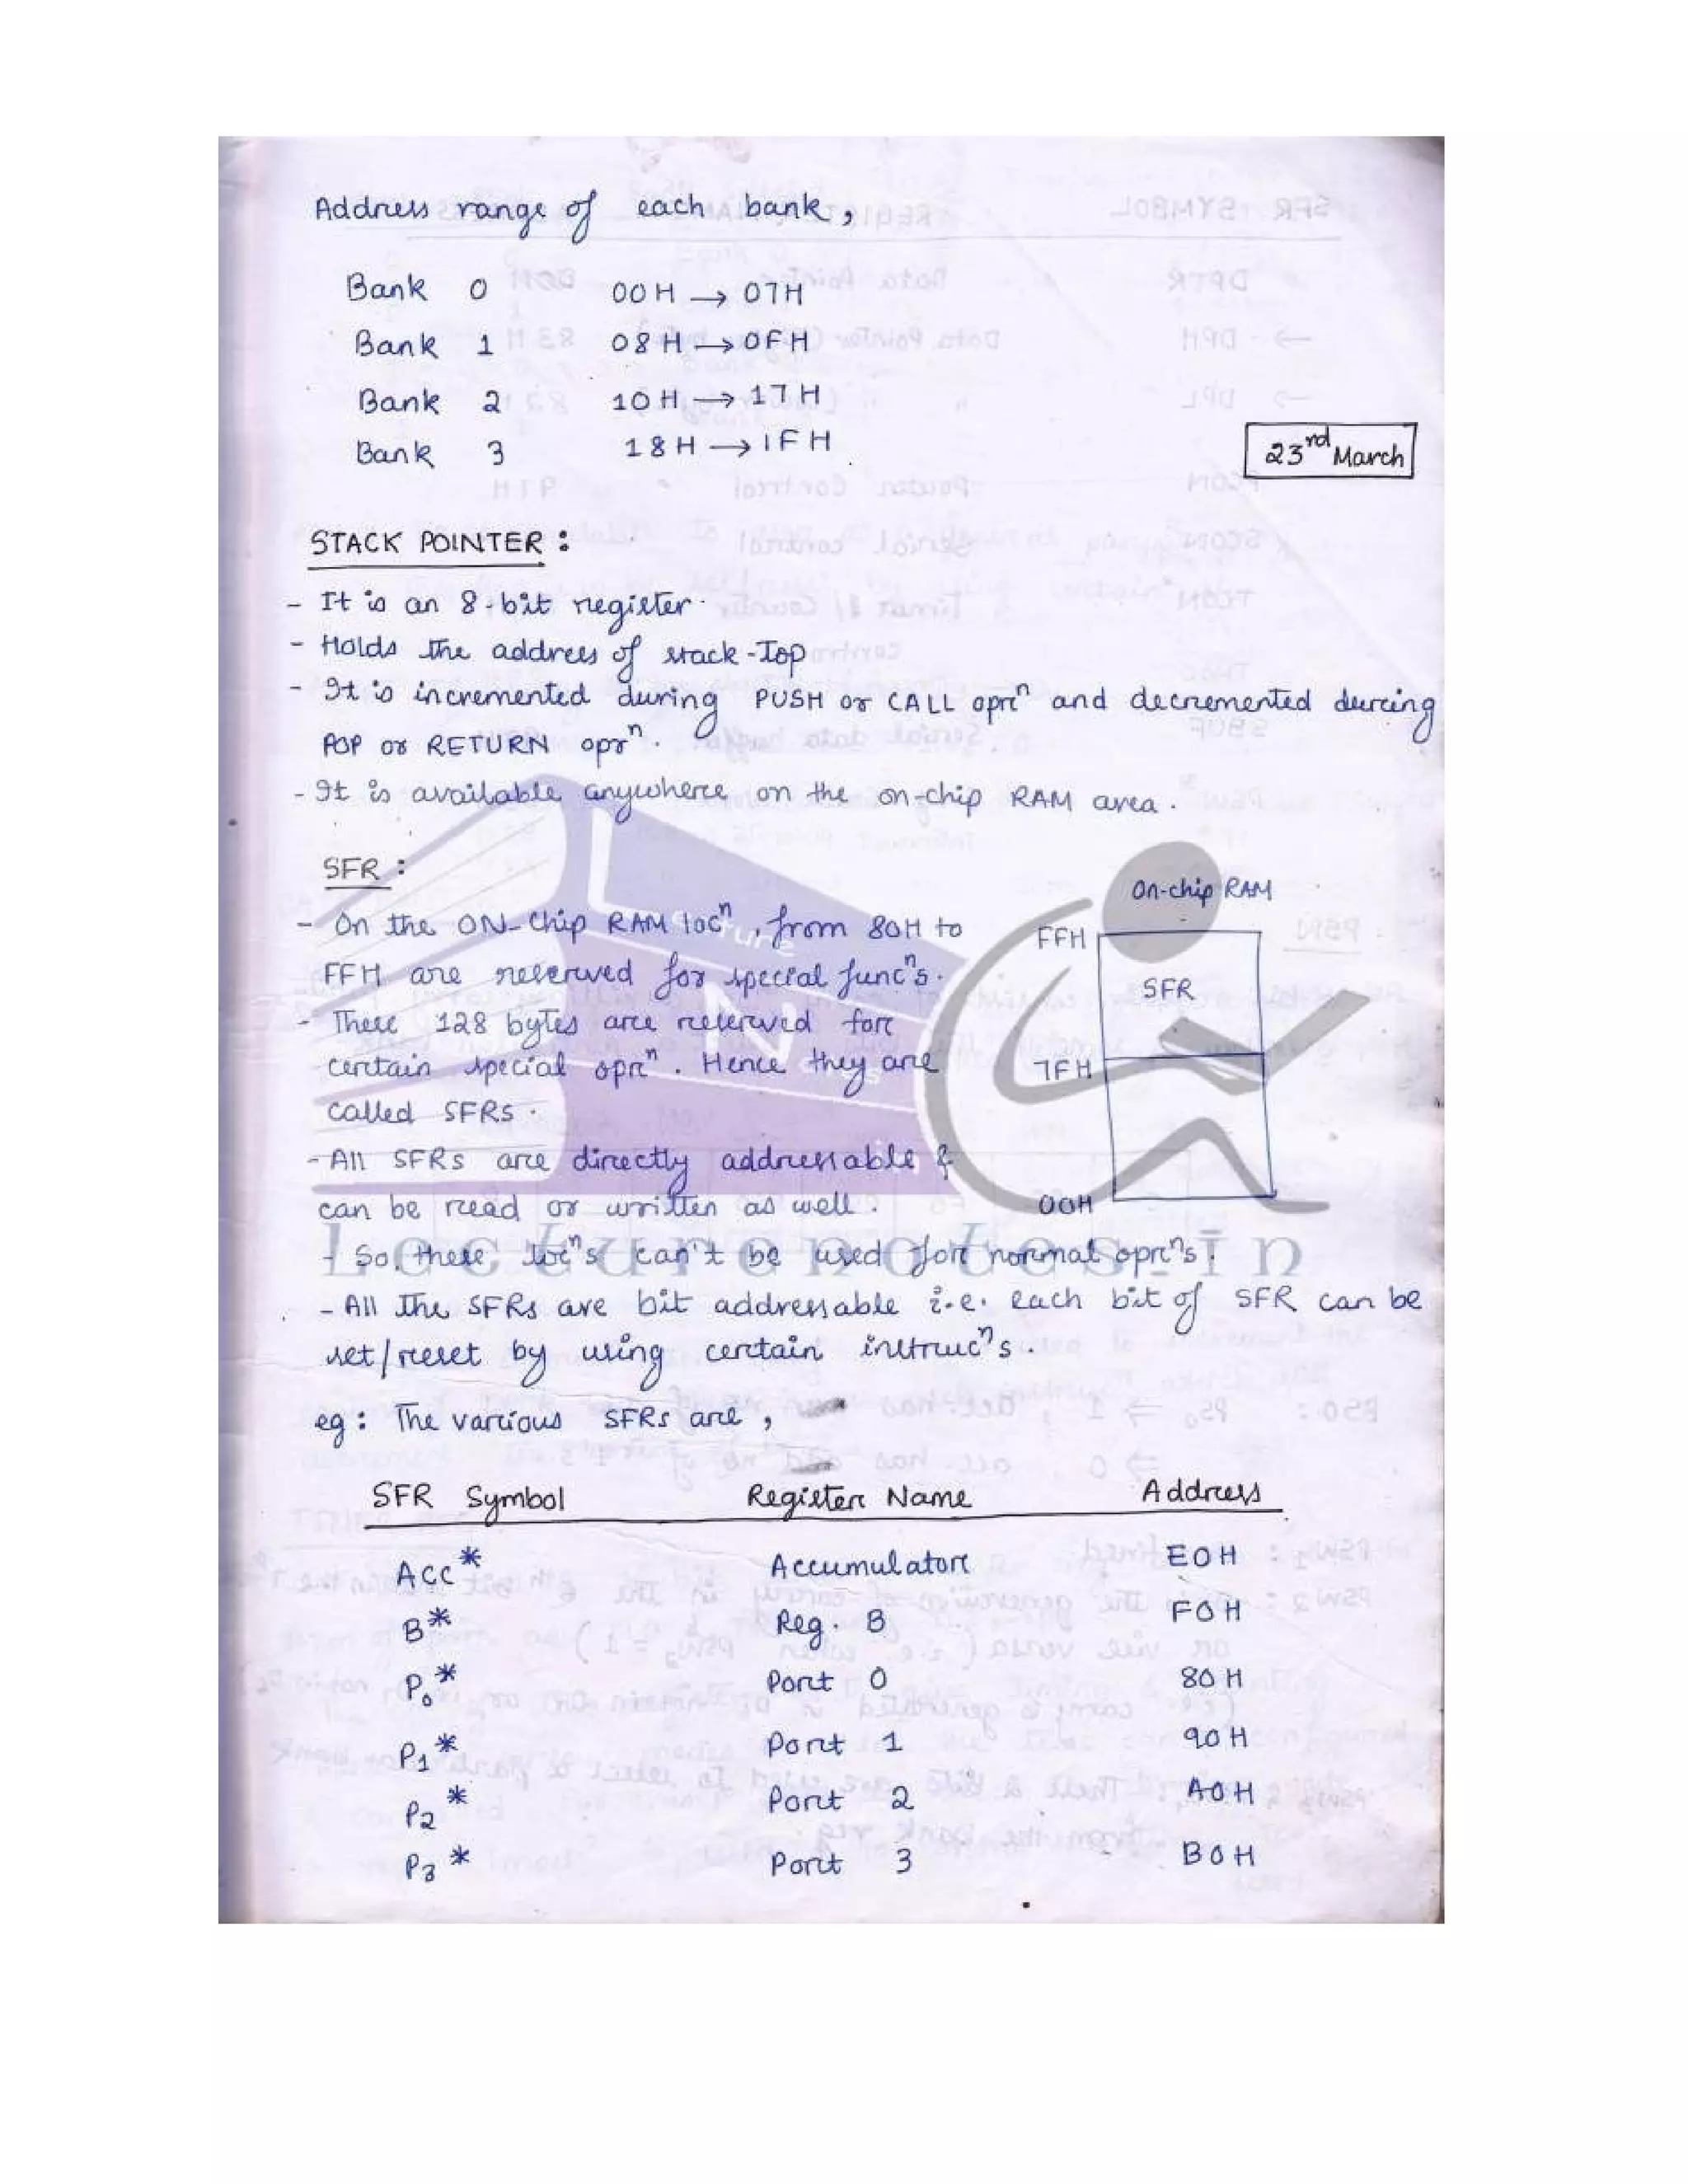 Address range of each bank,
Bank 0 00H → 07H
Bank 1 08H → 0FH
Bank 2 10H → 17H
Bank 3 18H → 1FH
23rd March
STACK POINTER :
- It is an 8-bit register.
- Holds the address of stack-Top
- It is incremented during PUSH or CALL oprn and decremented during
POP or RETURN oprn.
- It is available anywhere on the on-chip RAM area.
SFR :
- On the ON-Chip RAM locn, from 80H to
FFH are reserved for special funcns.
- These 128 bytes are reserved for
certain special oprn. Hence they are
called SFRs.
- All SFRs are directly addressable &
can be read or written as well.
- So, these locns can't be used for normal oprns.
- All the SFRs are bit addressable i.e. each bit of SFR can be
set/reset by using certain instrucns.
On-chip RAM
FFH
SFR
7FH
00H
Lecturenotes.in
eg : The various SFRs are,
SFR Symbol Register Name Address
ACC* Accumulator E0H
B* Reg. B F0H
P0* Port 0 80H
P1* Port 1 90H
P2* Port 2 A0H
P3* Port 3 B0H